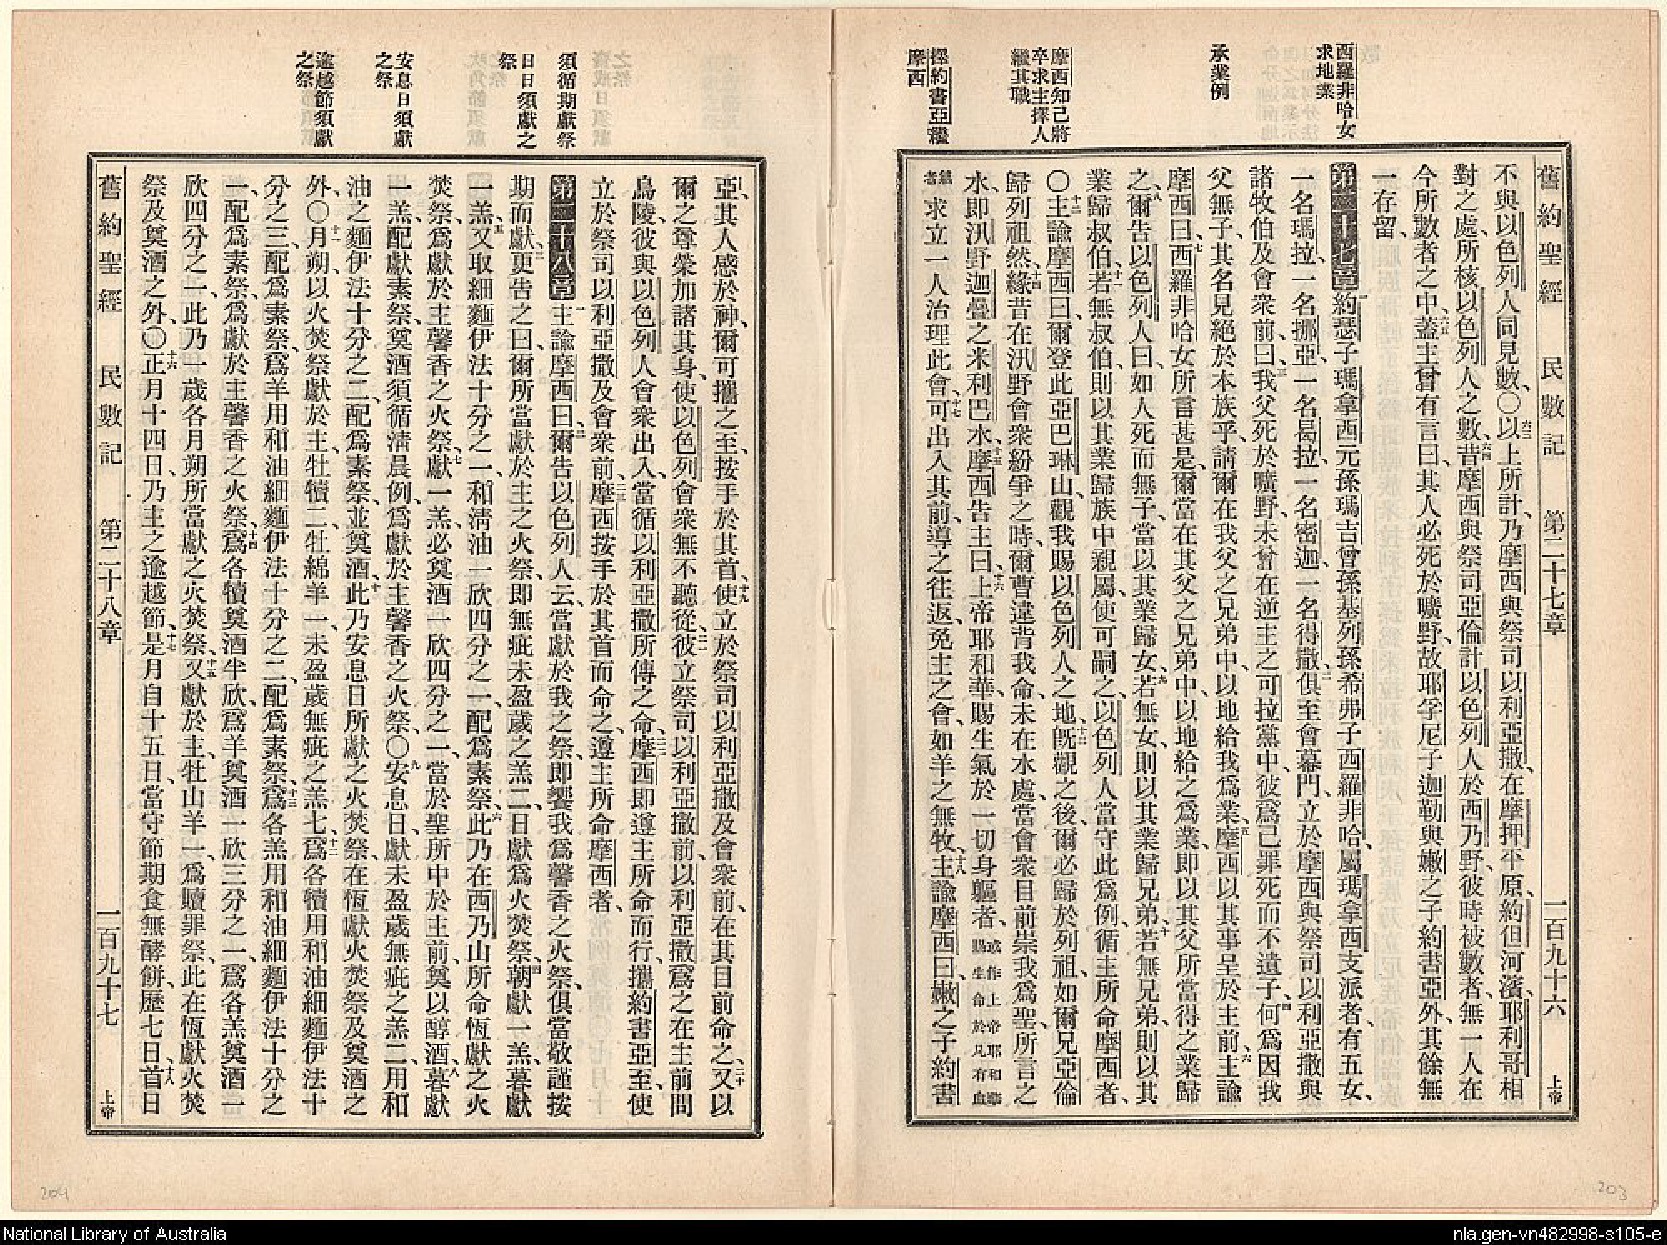 西羅非哈女
求地業
承業例
摩西知己將
卒求主擇人
繼其職
擇約書亞繼
摩西
舊約聖經 民數記 第二十七章 一百九十六 上帝
不與以色列人同見數、〇六三以上所計、乃摩西與祭司以利亞撒、在摩押平原、約但河濱、耶利哥相
對之處、所核以色列人之數、六四昔摩西與祭司亞倫計以色列人於西乃野、彼時被數者、無一人在
今所數者之中、六五蓋主曾有言曰、其人必死於曠野、故耶孚尼子迦勒與嫩之子約書亞外、其餘無
一存留、
第二十七章 一約瑟子瑪拿西元孫瑪吉曾孫基列孫希弗子西羅非哈、屬瑪拿西支派者、有五女、
一名瑪拉、一名挪亞、一名曷拉、一名密迦、一名得撒、二俱至會幕門、立於摩西與祭司以利亞撒與
諸牧伯及會衆前、曰、三我父死於曠野、未曾在逆主之可拉黨中、彼爲己罪死而不遺子、四何爲因我
父無子、其名見絕於本族乎、請爾在我父之兄弟中、以地給我爲業、五摩西以其事呈於主前、六主諭
摩西曰、七西羅非哈女所言甚是、爾當在其父之兄弟中、以地給之爲業、即以其父所當得之業歸
之、八爾告以色列人曰、如人死而無子、當以其業歸女、九若無女、則以其業歸兄弟、十若無兄弟、則以其
業歸叔伯、十一若無叔伯、則以其業歸族中親屬、使可嗣之、以色列人當守此爲例、循主所命摩西者、
〇十二主諭摩西曰、爾登此亞巴琳山、觀我賜以色列人之地、十三既觀之後、爾必歸於列祖、如爾兄亞倫
歸列祖然、十四緣昔在汛野會衆紛爭之時、爾曹違背我命、未在水處、當會衆目前崇我爲聖、所言之
水、即汛野迦疊之米利巴水、十五摩西告主曰、十六上帝耶和華、賜生氣於一切身軀者、或作上帝耶和華賜生命於凡有血
氣者求立一人治理此會、十七可出入其前、導之往返、免主之會、如羊之無牧、十八主諭摩西曰、嫩之子約書
須循期獻祭
日日須獻之
祭
安息日須獻
之祭
逾越節須獻
之祭
亞、其人感於神、爾可攜之至、按手於其首、十九使立於祭司以利亞撒及會衆前、在其目前命之、二十又以
爾之尊榮加諸其身、使以色列會衆無不聽從、二一彼立祭司以利亞撒前、以利亞撒爲之在主前問
烏陵、彼與以色列人會衆出入、當循以利亞撒所傳之命、二二摩西即遵主所命而行、攜約書亞至、使
立於祭司以利亞撒及會衆前、二三摩西按手於其首而命之、遵主所命摩西者、
第二十八章 一主諭摩西曰、二爾告以色列人云、當獻於我之祭、即饗我爲馨香之火祭、俱當敬謹按
期而獻、三更告之曰、爾所當獻於主之火祭、即無疵未盈歲之羔二、日獻爲火焚祭、四朝獻一羔、暮獻
一羔、五又取細麵伊法十分之一、和清油一欣四分之一、配爲素祭、六此乃在西乃山所命恆獻之火
焚祭、爲獻於主馨香之火祭、七獻一羔、必奠酒一欣四分之一、當於聖所中於主前、奠以醇酒、八暮獻
一羔、配獻素祭、奠酒須循清晨例、爲獻於主馨香之火祭、〇九安息日、獻未盈歲無疵之羔二、用和
油之麵伊法十分之二、配爲素祭、並奠酒、十此乃安息日所獻之火焚祭、在恆獻火焚祭及奠酒之
外、〇十一月朔、以火焚祭獻於主、牡犢二、牡綿羊一、未盈歲無疵之羔七、十二爲各犢用和油細麵伊法十
分之三、配爲素祭、爲羊用和油細麵伊法十分之二、配爲素祭、十三爲各羔用和油細麵伊法十分之
一、配爲素祭、爲獻於主馨香之火祭、十四爲各犢奠酒半欣、爲羊奠酒一欣三分之一、爲各羔奠酒一
欣四分之一、此乃一歲各月朔所當獻之火焚祭、十五又獻於主、牡山羊一、爲贖罪祭、此在恆獻火焚
祭及奠酒之外、〇十六正月十四日、乃主之逾越節、十七是月自十五日、當守節期、食無酵餅、歷七日、十八首日
舊約聖經 民數記 第二十八章 一百九十七 上帝
204
203
National Library of Australia
nla.gen-vn482998-s105-e